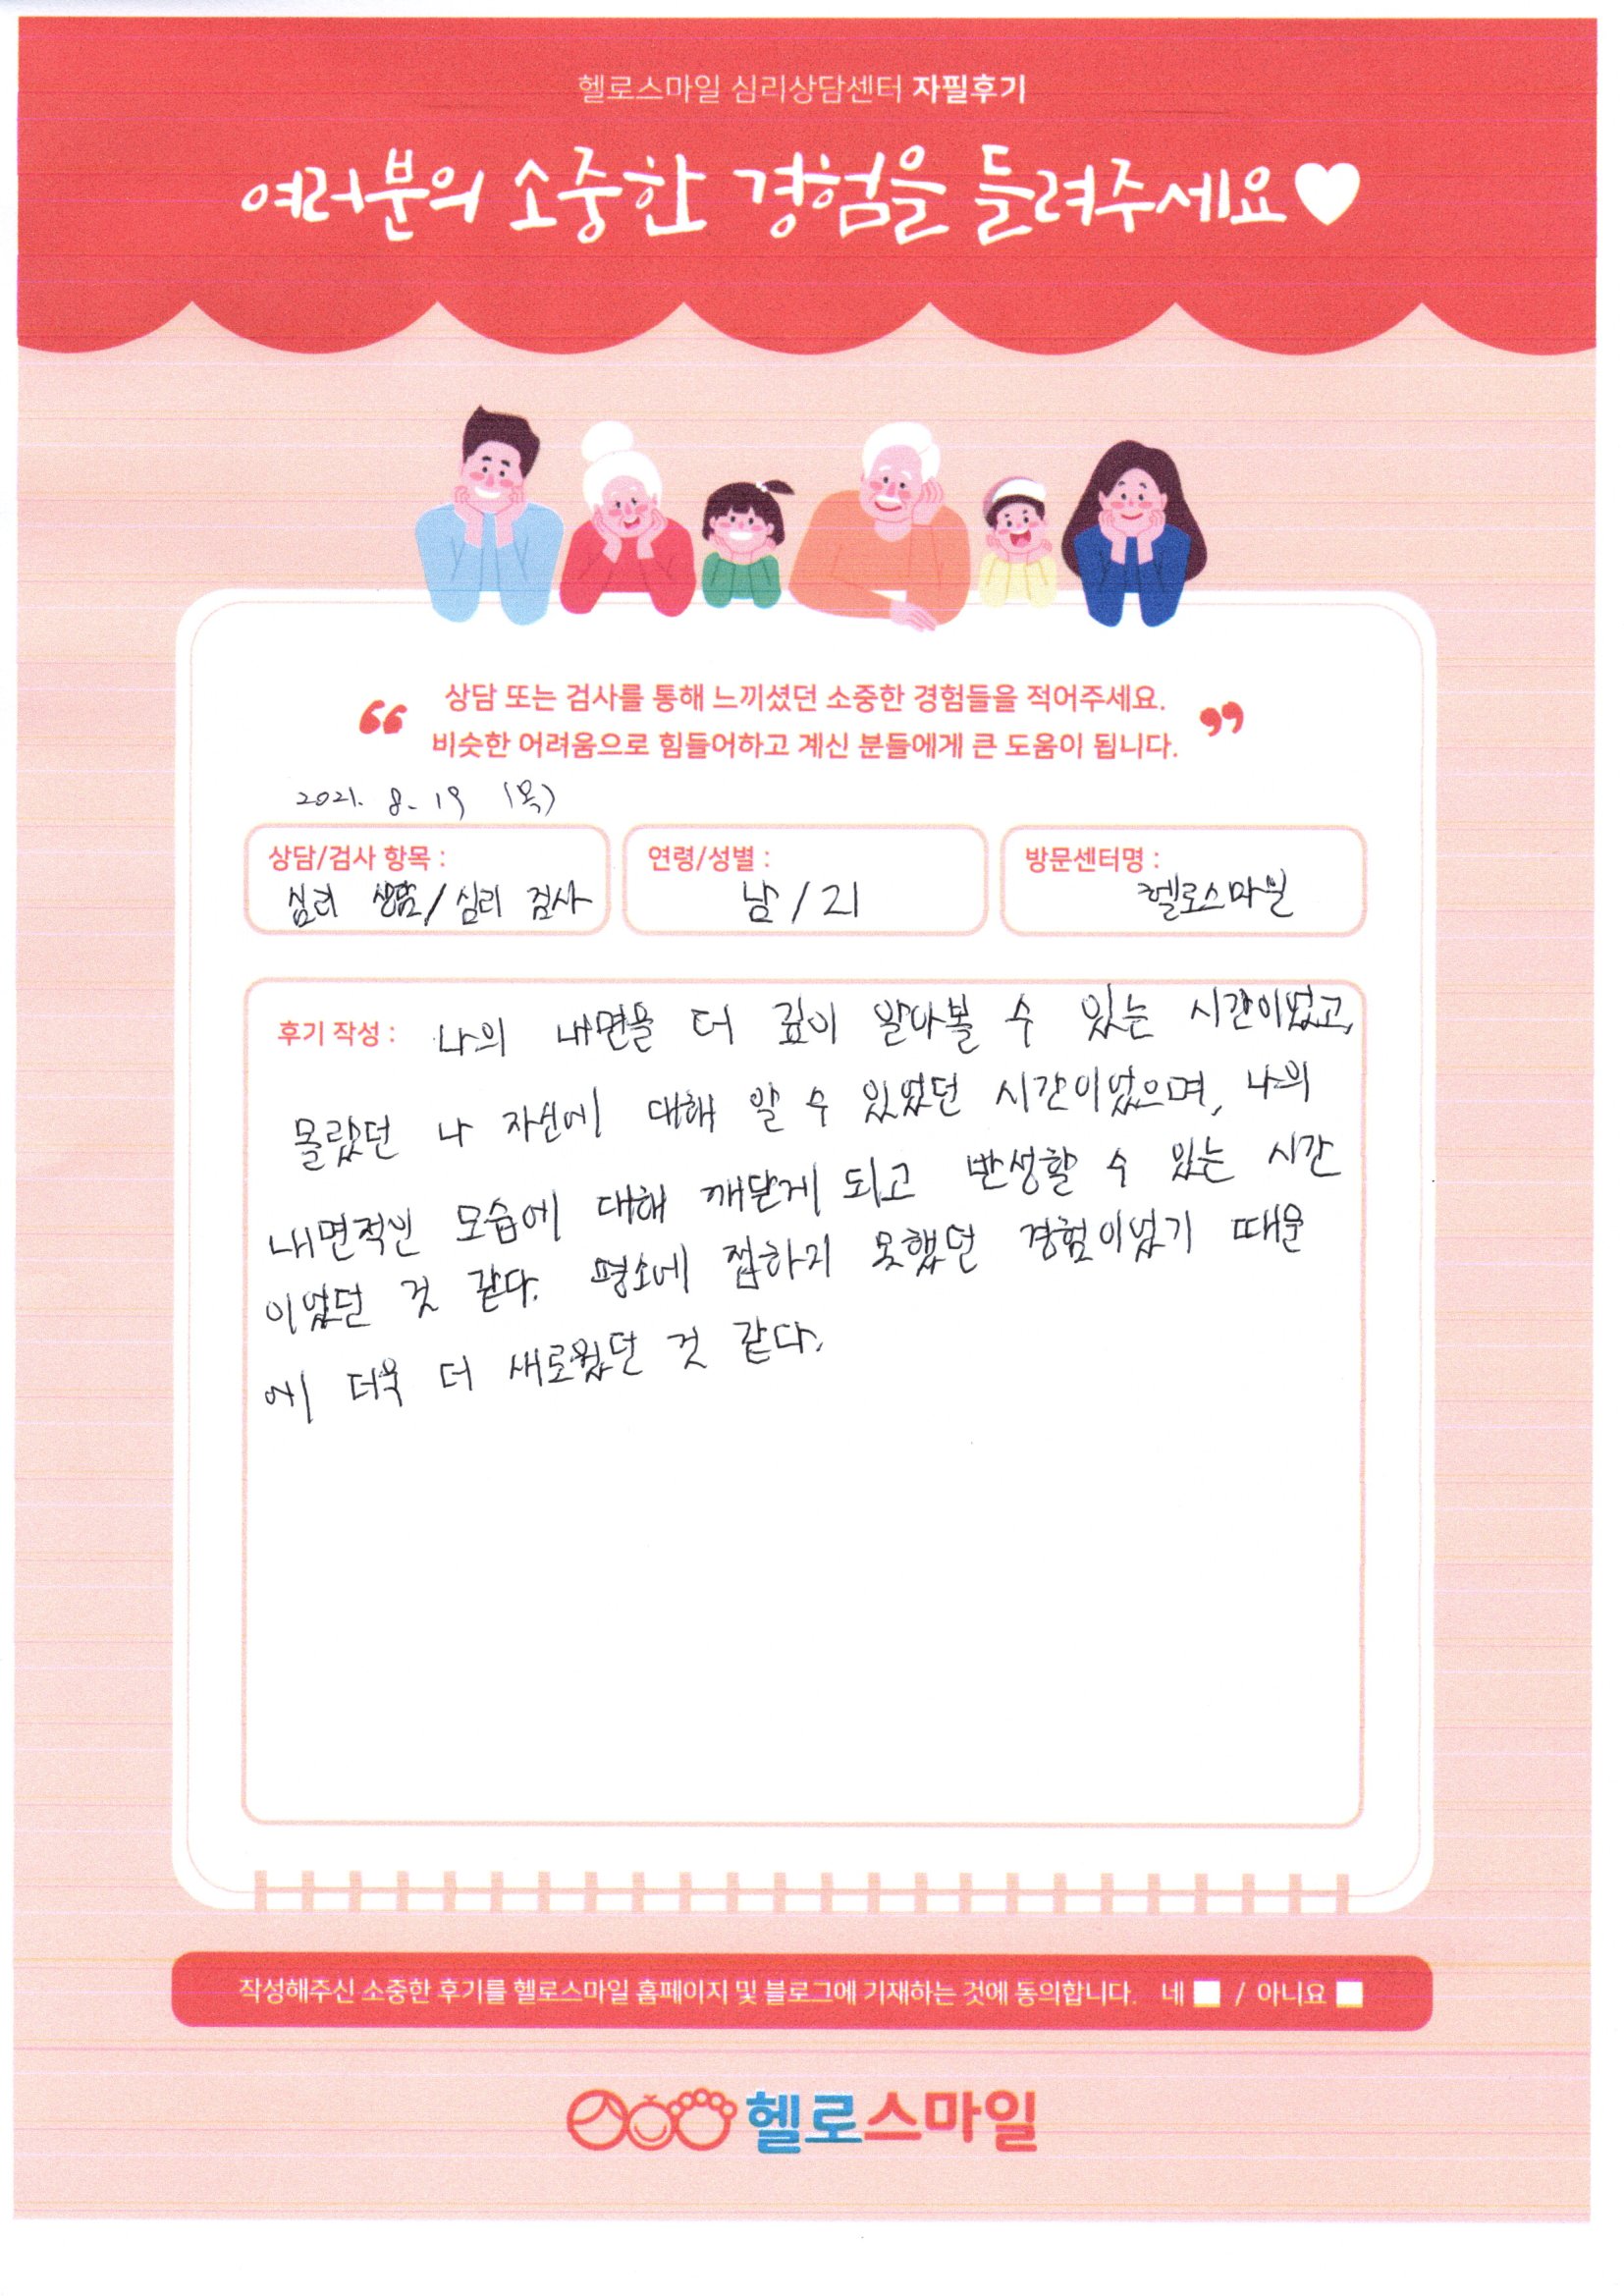 헬로스마일 심리상담센터 자필후기
여러분의 소중한 경험을 들려주세요
“ 상담 또는 검사를 통해 느끼셨던 소중한 경험들을 적어주세요.
비슷한 어려움으로 힘들어하고 계신 분들에게 큰 도움이 됩니다. ”
2021. 8. 19 (목)
상담/검사 항목 :
심리 상담/심리 검사
연령/성별 :
남/21
방문센터명 :
헬로스마일
후기 작성 : 나의 내면을 더 깊이 알아볼 수 있는 시간이었고,
몰랐던 나 자신에 대해 알 수 있었던 시간이었으며, 나의
내면적인 모습에 대해 깨닫게 되고 반성할 수 있는 시간
이었던 것 같다. 평소에 접하지 못했던 경험이었기 때문
에 더욱 더 새로웠던 것 같다.
작성해주신 소중한 후기를 헬로스마일 홈페이지 및 블로그에 기재하는 것에 동의합니다. 네 / 아니요
헬로스마일